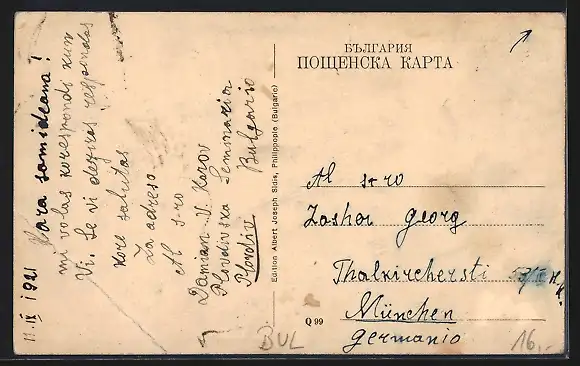 11. IX 1921
Kara samideano!
mi volas korespondi kun
Vi. Se vi deziras respondas
kore salutas
La adreso
Al s-ro
Damian V. Korov
Plovdivska Seminaria
Plovdiv Bulgario
Edition Albert Joseph Sidis, Philippople (Bulgarie)
БЪЛГАРИЯ
ПОЩЕНСКА КАРТА
Al s-ro
Georg
Thalkirchersti
München
Germanio
Q 99
BUL
16,-